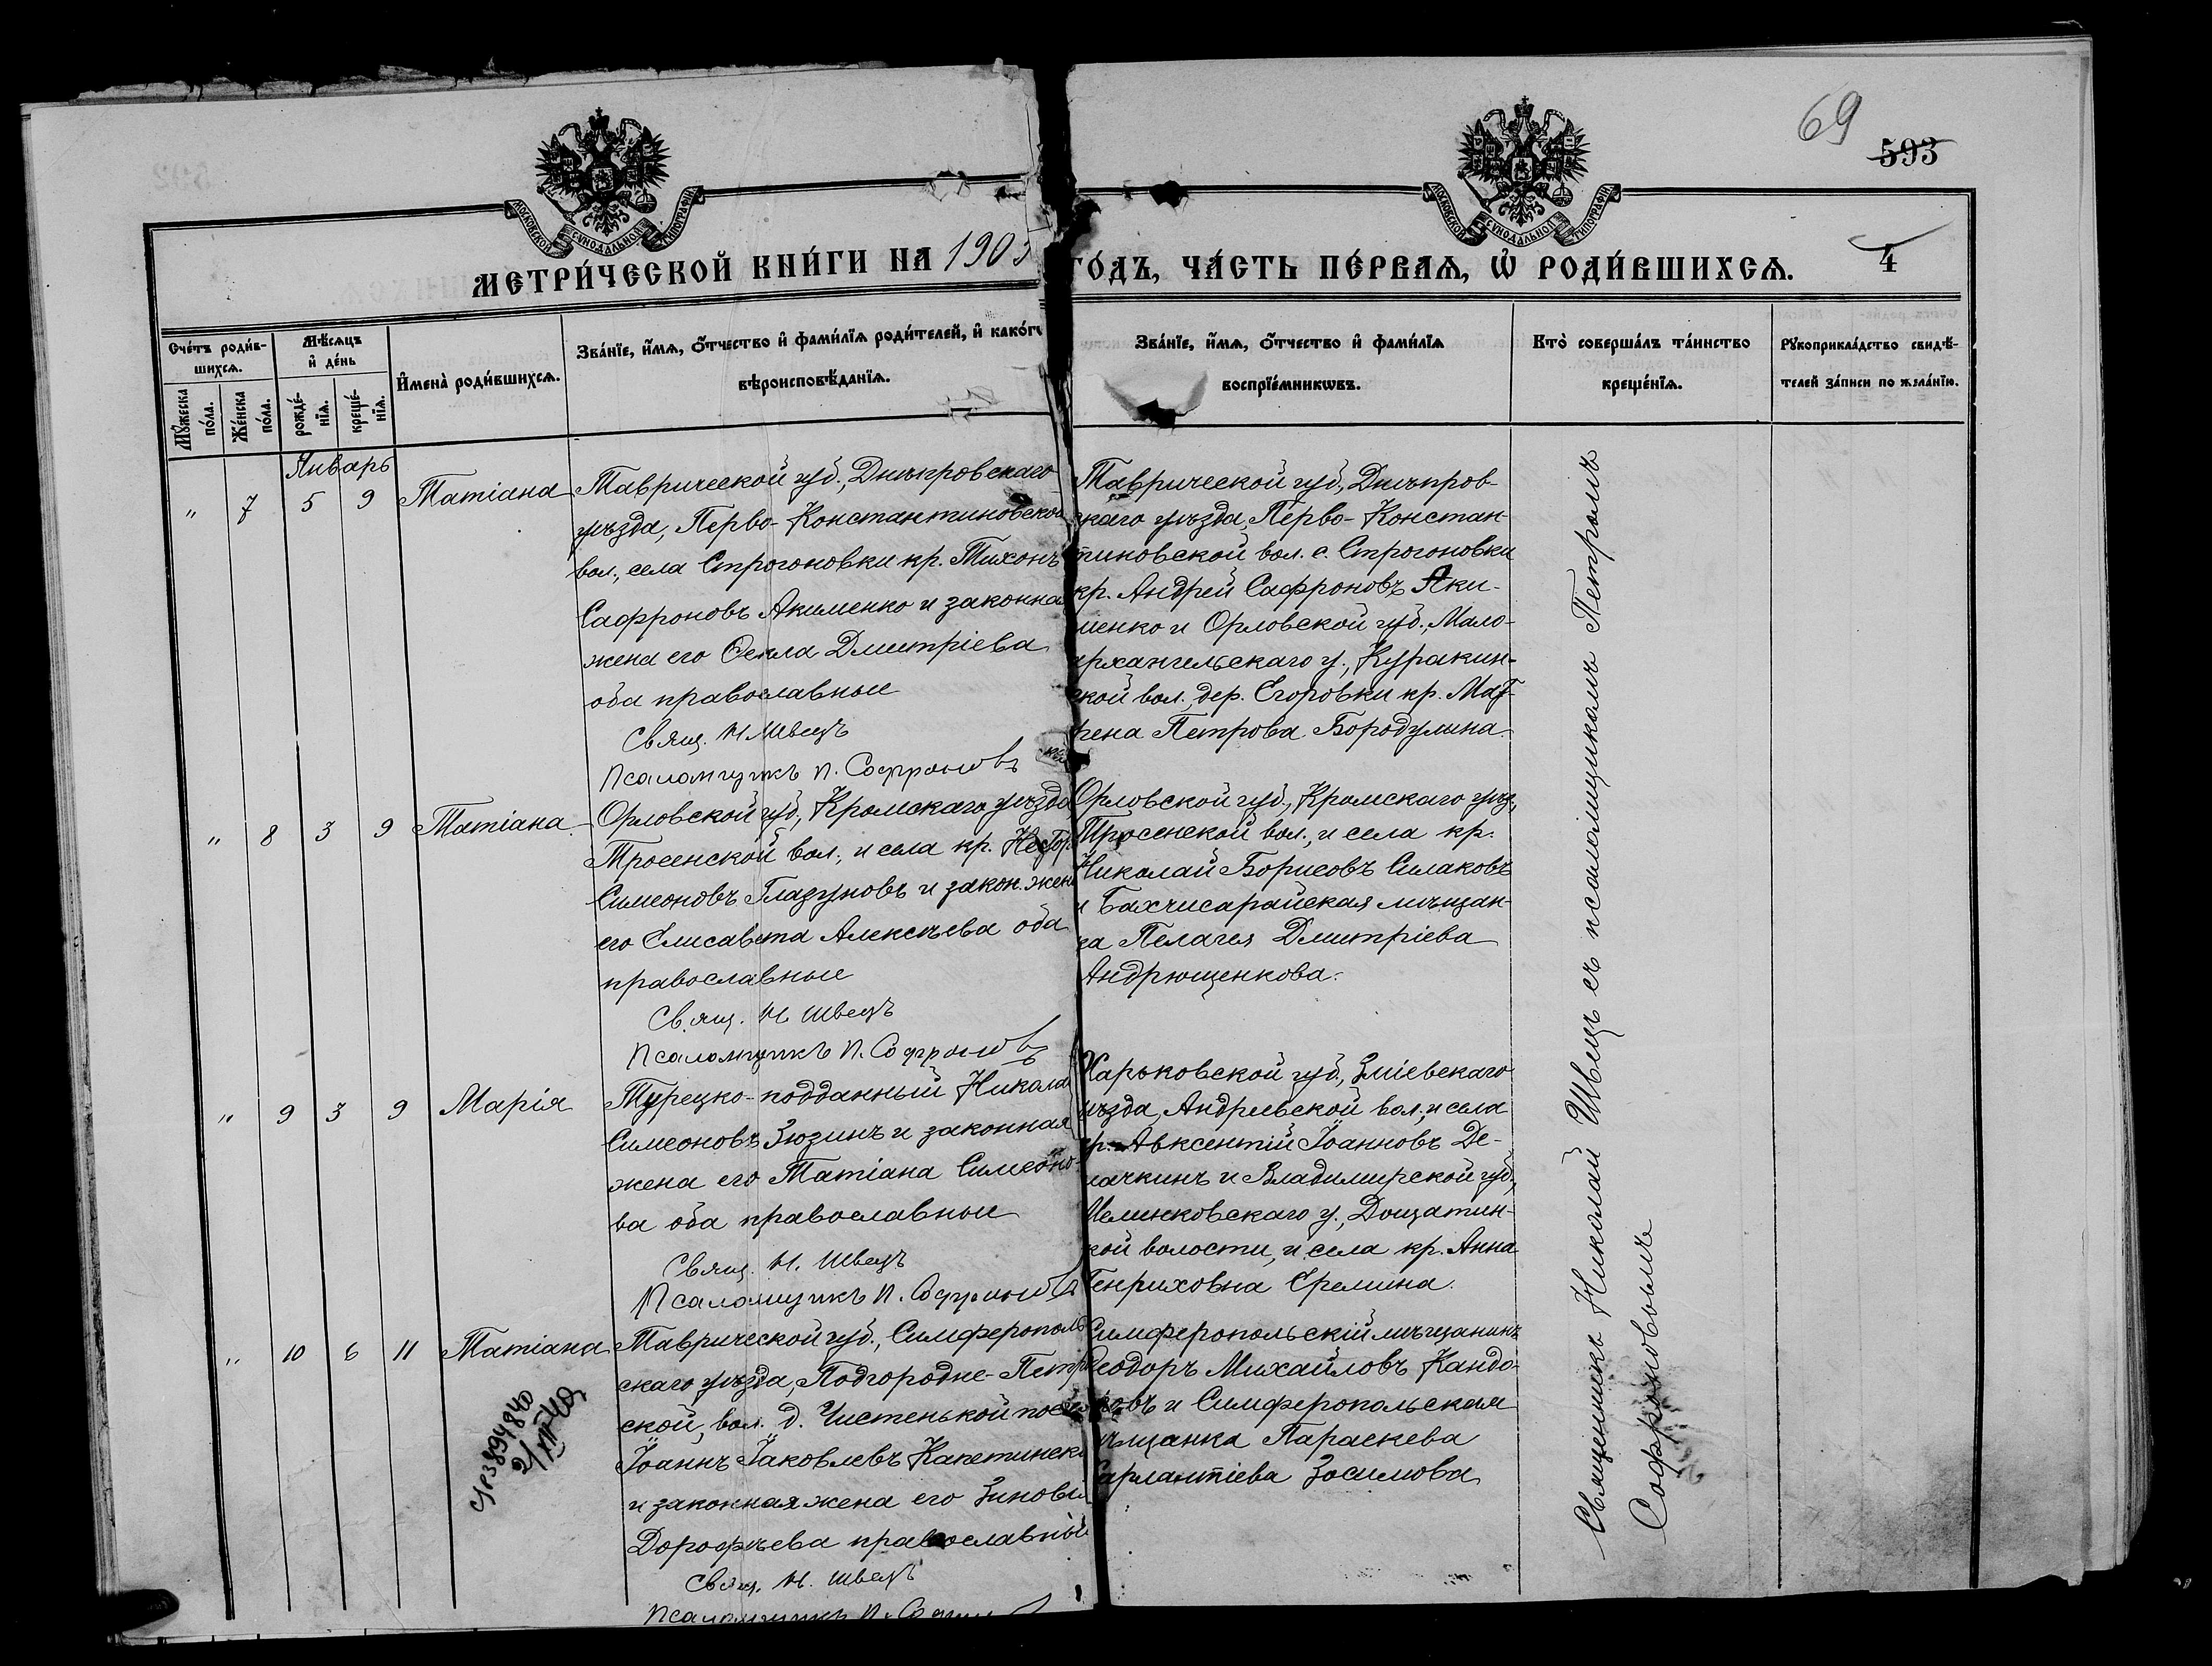 69
593
МОСКОВСКОЙ СѴНОДАЛЬНОЙ ТИПОГРАФІИ
МОСКОВСКОЙ СѴНОДАЛЬНОЙ ТИПОГРАФІИ
МЕТРИ́ЧЕСКОЙ КНИ́ГИ НА 1905
ГО́ДЪ, ЧА́СТЬ ПЕ́РВАѦ, Ѡ҆ РОДИ́ВШИХСѦ.
4
Сче́тъ роди́в-
шихсѧ.
Мꙋ́жеска
по́ла.
Же́нска
по́ла.
Мѣ́сѧцъ
и҆ де́нь
рожде́-
нїѧ.
креще́-
нїѧ.
И҆мена̀ роди́вшихсѧ.
Зва́нїе, и҆́мѧ, ѻ҆́тчество и҆ фами́лїѧ роди́телей, и҆ како́гѡ
вѣроисповѣ́данїѧ.
Зва́нїе, и҆́мѧ, ѻ҆́тчество и҆ фами́лїѧ
воспрїе́мникѡвъ.
Кто̀ соверша́лъ та́инство
креще́нїѧ.
Рꙋкоприкла́дство свидѣ́-
телей за́писи по жела́нїю.
Январь
" 7 5 9 Татіана
Таврической губ., Днѣпровскаго
уѣзда, Перво-Константиновской
вол., села Строгоновки кр. Тихонъ
Сафроновъ Акименко и законна
жена его Ѳекла Дмитріева
оба православные
Свящ. Н. Швецъ
Псаломщикъ П. Софроновъ
Таврической губ., Днѣпров-
скаго уѣзда, Перво-Констан-
тиновской вол. с. Строгоновки
кр. Андрей Сафроновъ Аки-
менко и Орловской губ., Мало-
архангельскаго у., Куракин-
ской вол., дер. Егоровки кр. Мат-
рена Петрова Бородулина
" 8 3 9 Татіана
Орловской губ., Кромскаго уѣзда
Тросенской вол., и села кр. Нестор
Симеоновъ Глазуновъ и закон. жена
его Елисавета Алексѣева оба
православные
Свящ. Н. Швецъ
Псаломщикъ П. Софроновъ
Орловской губ., Кромскаго уѣз.,
Тросенской вол., и села кр.
Николай Борисовъ Силаковъ
и Бахчисарайская мѣщан-
ка Пелагея Дмитріева
Андрющенкова.
" 9 3 9 Марія
Турецко-подданный Никола
Симеоновъ Зюзинъ и законная
жена его Татіана Симеоно-
ва оба православные
Свящ. Н. Швецъ
Псаломщикъ П. Софроновъ
Харьковской губ., Зміевскаго
уѣзда, Андреевской вол., и села
кр. Авксентій Іоанновъ Де-
мачкинъ и Владимирской губ.,
Меленковскаго у., Дощатин-
ской волости, и села кр. Анна
Генриховна Еремина.
" 10 6 11 Татіана
Таврической губ., Симферополь
скаго уѣзда, Подгородне-Петров
ской, вол. д. Чистенькой посел
Іоаннъ Іаковлевъ Капетинск
и законная жена его Зинові
Дорофѣева православные
Свящ. Н. Швецъ
Псаломщикъ П. Софроновъ
Симферопольскій мѣщанинъ
Ѳеодоръ Михайловъ Кандо-
и Симферопольская
мѣщанка Параскева
Харлампіева Зосимова
2/XII 40
Священникъ Николай Швецъ съ псаломщикомъ Петромъ
Софроновымъ